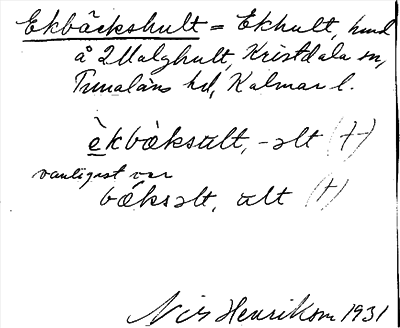 Ekbäckshult = Ekhult, hmd
å Malghult, Kristdala sn,
Tunaläns hd, Kalmar l.
èkbæksult, -əlt (†)
vanligast var
bǽksəlt, ult (†)
Nils Henriksson 1931